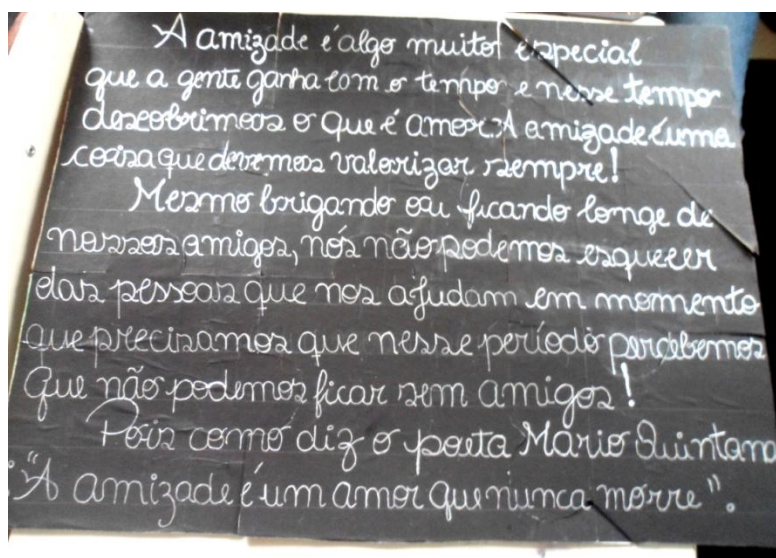 A amizade é algo muito especial
que a gente ganha com o tempo e nesse tempo
descobrimos o que é amor. A amizade é uma
coisa que devemos valorizar sempre!
Mesmo brigando ou ficando longe de
nossos amigos, nós não podemos esquecer
das pessoas que nos ajudam em momento
que precisamos que nesse período percebemos
que não podemos ficar sem amigos!
Pois como diz o poeta Mário Quintana
: "A amizade é um amor que nunca morre".